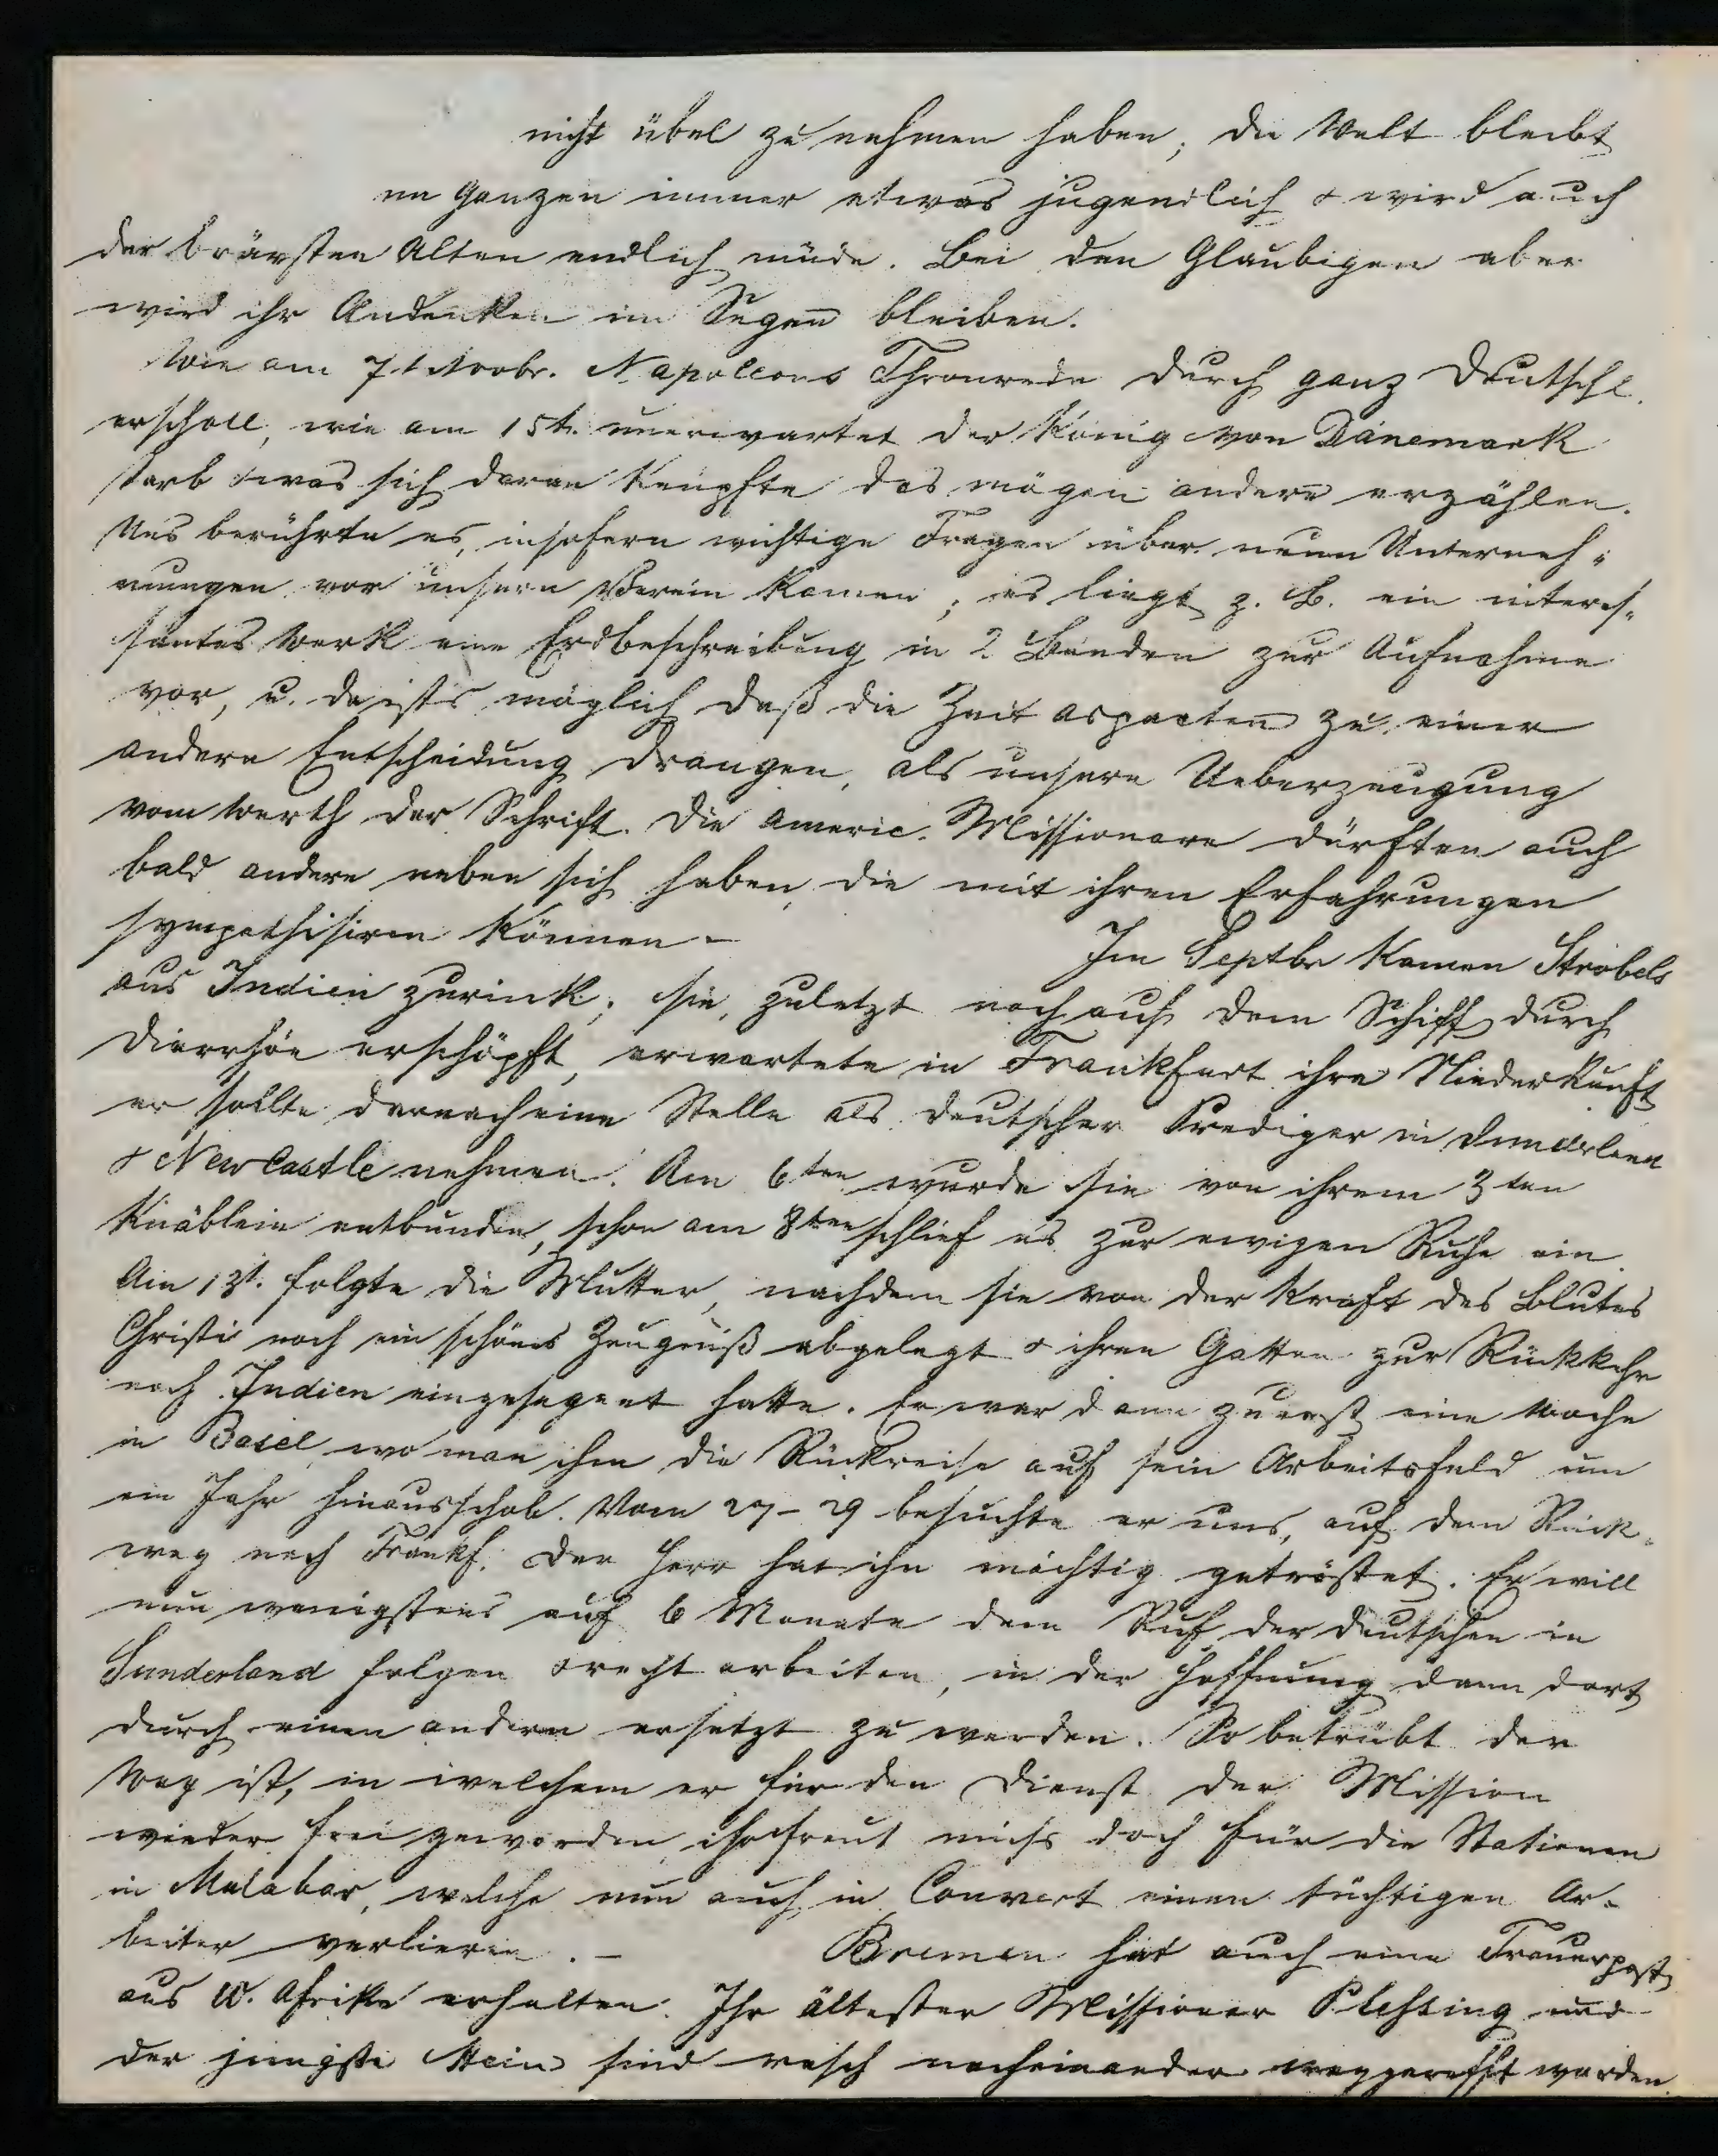 nicht übel zu nehmen haben; die Welt bleibt
im Ganzen immer etwas jugendlich & wird auch
der brävsten Alten endlich müde. Bei den Glaubigen aber
wird ihr Andenken im Segen bleiben.
Wie am 7t Novbr. Napoleons Thronrede durch ganz Deutschl.
erscholl, wie am 15t. unerwartet der König von Dänemark
starb & was sich daran knüpfte das mögen andere erzählen.
Uns berührte es, insofern wichtige Fragen über neue Unterneh-
mungen vor unsern Verein kamen; es liegt z. B. ein interes-
santes Werk eine Erdbeschreibung in 2 Bänden zur Aufnahme
vor, u. da ists möglich daß die Zeitaspecten zu einer
andern Entscheidung drangen, als unsere Ueberzeugung
vom Werth der Schrift. Die americ. Missionare dürften auch
bald andere neben sich haben, die mit ihren Erfahrungen
sympathisiren können –
Im Septbr kamen Strobels
aus Indien zurück; sie, zuletzt noch auf dem Schiff durch
Diarrhöe erschöpft, erwartete in Frankfurt ihre Niederkunft
er sollte darnach eine Stelle als deutscher Prediger in Sunderland
& NewCastle nehmen. Am 6ten wurde sie von ihrem 3ten
Knäblein entbunden, schon am 8ten schlief es zur ewigen Ruhe ein.
Am 13t. folgte die Mutter, nachdem sie von der Kraft des Blutes
Christi noch ein schönes Zeugniß abgelegt & ihren Gatten zur Rückkehr
nach Indien eingesegnet hatte. Er war dann zuerst eine Woche
in Basel, wo man ihm die Rückreise auf sein Arbeitsfeld um
ein Jahr hinausschob. Vom 27-29 besuchte er uns, auf dem Rück-
weg nach Frankf. Der Herr hat ihn mächtig getröstet. Er will
nun wenigstens auf 6 Monate dem Ruf der Deutschen in
Sunderland folgen & recht arbeiten, in der Hoffnung dann dort
durch einen andern ersetzt zu werden. So betrübt der
Weg ist, in welchem er für den Dienst der Mission
wieder frei geworden, freut michs doch für die Stationen
in Malabar, welche nun auch in Convert einen tüchtigen Ar-
beiter verlieren. –
Bremen hat auch eine Trauerpost
aus W. Afrika erhalten. Ihr ältester Missionar Plessing und
der jüngste Stein sind rasch nacheinander weggerafft worden.